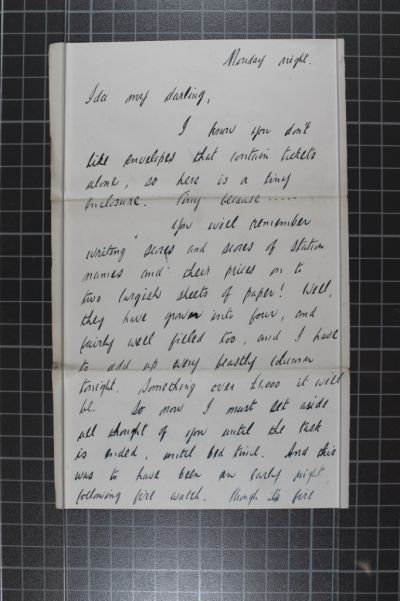 Monday night.
Ida my darling,
I know you don't
like envelopes that contain tickets
alone, so here is a tiny
enclosure. Tiny because .....
You will remember
writing scores and scores of station
names and their prices on to
two largish sheets of paper! Well,
they have grown into four, and
fairly well filled too, and I have
to add up every beastly column
tonight. Something over £1,000 it will
be. So now I must set aside
all thought of you until the task
is ended, until bed time. And this
was to have been an early night,
following fire watch. Though its fire